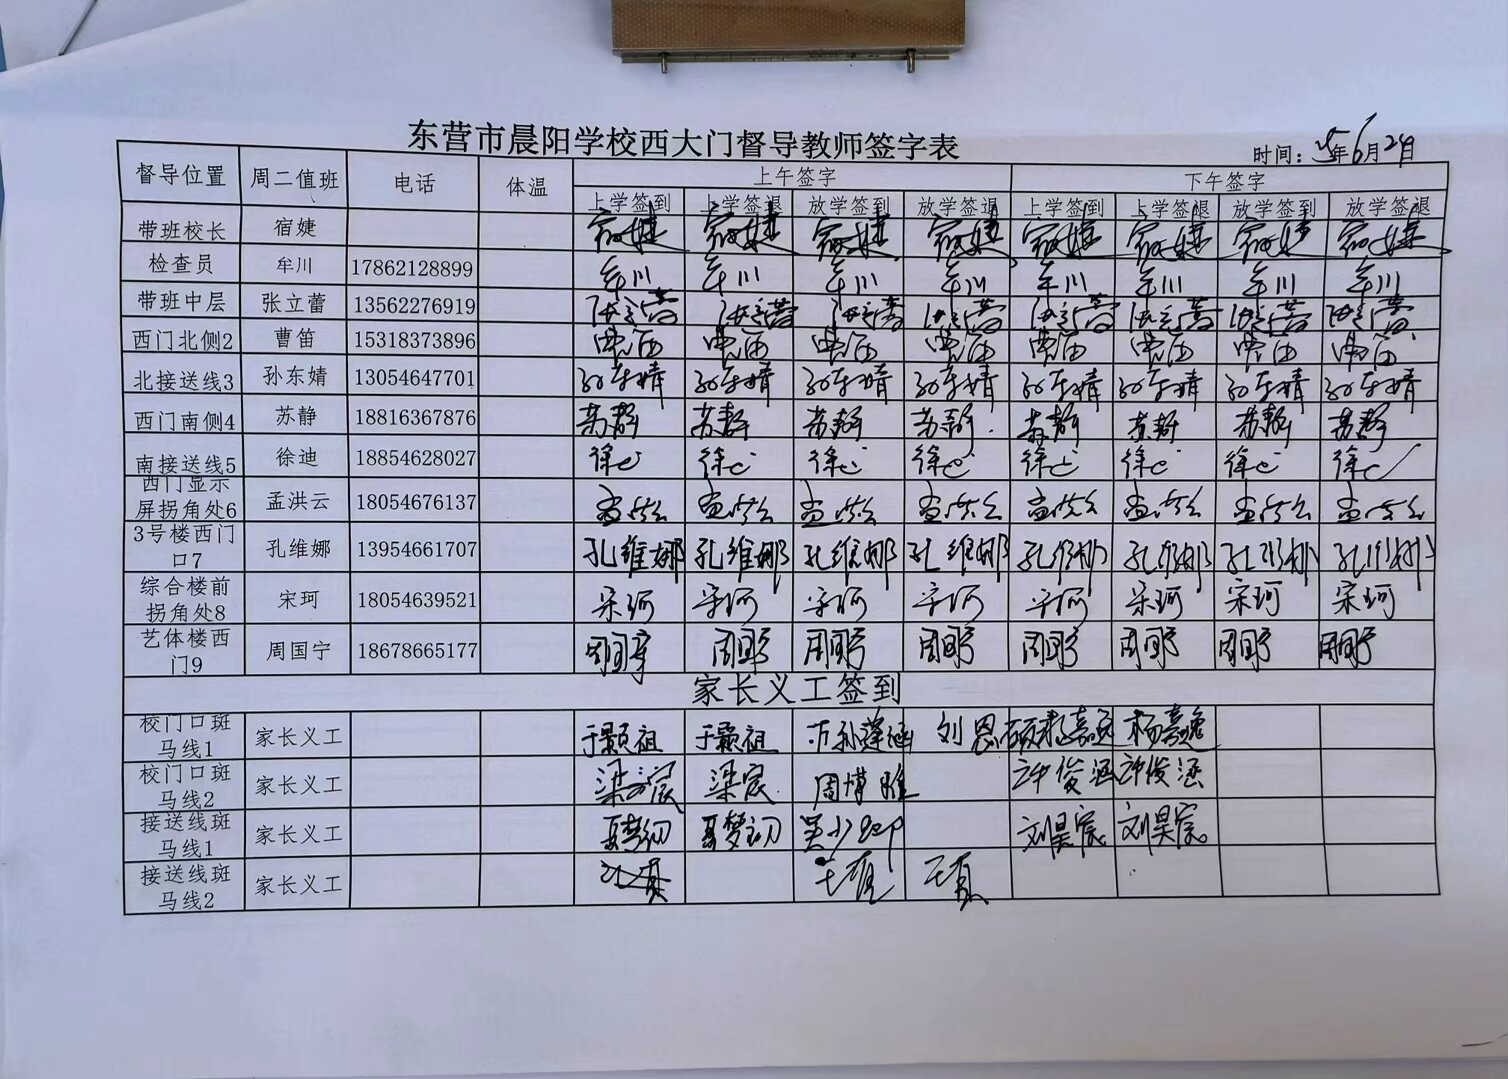 东营市晨阳学校西大门督导教师签字表
时间: 年6月24日
督导位置 周二值班 电话 体温 上午签字 下午签字
上学签到 上学签退 放学签到 放学签退 上学签到 上学签退 放学签到 放学签退
带班校长 宿婕 宿婕 宿婕 宿婕 宿婕 宿婕 宿婕 宿婕 宿婕
检查员 牟川 17862128899 牟川 牟川 牟川 牟川 牟川 牟川 牟川 牟川
带班中层 张立蕾 13562276919 张立蕾 张立蕾 张立蕾 张立蕾 张立蕾 张立蕾 张立蕾 张立蕾
西门北侧2 曹笛 15318373896 曹笛 曹笛 曹笛 曹笛 曹笛 曹笛 曹笛 曹笛
北接送线3 孙东婧 13054647701 孙东婧 孙东婧 孙东婧 孙东婧 孙东婧 孙东婧 孙东婧 孙东婧
西门南侧4 苏静 18816367876 苏静 苏静 苏静 苏静 苏静 苏静 苏静 苏静
南接送线5 徐迪 18854628027 徐迪 徐迪 徐迪 徐迪 徐迪 徐迪 徐迪 徐迪
西门显示
屏拐角处6 孟洪云 18054676137 孟洪云 孟洪云 孟洪云 孟洪云 孟洪云 孟洪云 孟洪云 孟洪云
3号楼西门
口7 孔维娜 13954661707 孔维娜 孔维娜 孔维娜 孔维娜 孔维娜 孔维娜 孔维娜 孔维娜
综合楼前
拐角处8 宋珂 18054639521 宋珂 宋珂 宋珂 宋珂 宋珂 宋珂 宋珂 宋珂
艺体楼西
门9 周国宁 18678665177 周国宁 周国宁 周国宁 周国宁 周国宁 周国宁 周国宁 周国宁
家长义工签到
校门口斑
马线1 家长义工 于颢祖 于颢祖 范孙莲涵 刘恩硕 杨嘉逸 杨嘉逸
校门口斑
马线2 家长义工 梁宸 梁宸 周博雅 许俊涵 许俊涵
接送线斑
马线1 家长义工 聂梦初 聂梦初 刘昊宸 刘昊宸
接送线斑
马线2 家长义工